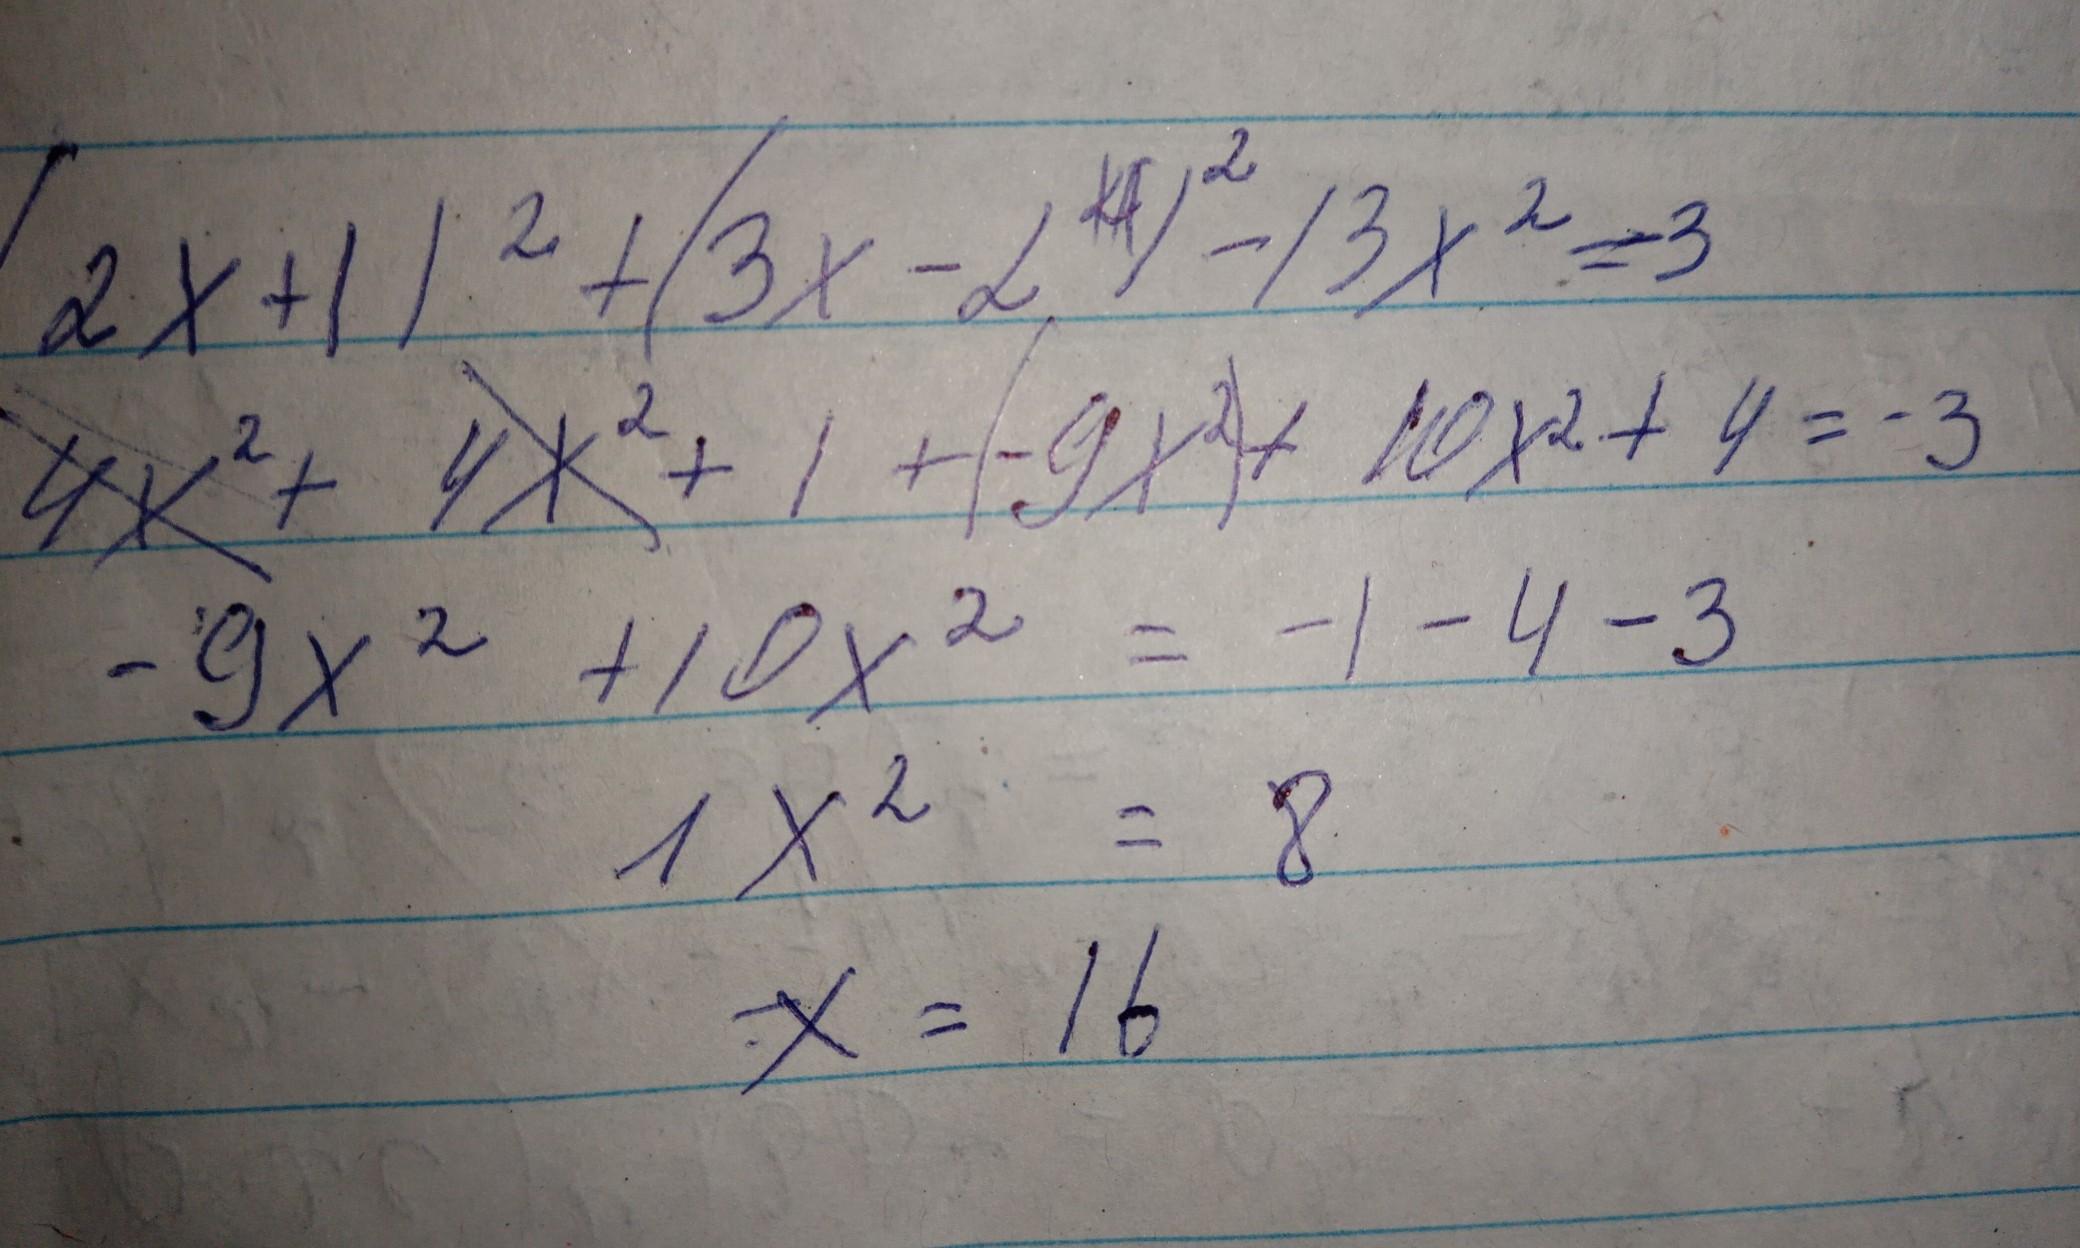 (2x+1)² + (3x-2)² - 13x² = -3
4x² + 4x² + 1 + (-9x²) + 10x² + 4 = -3
-9x² + 10x² = -1 - 4 - 3
1x² = 8
x = 16